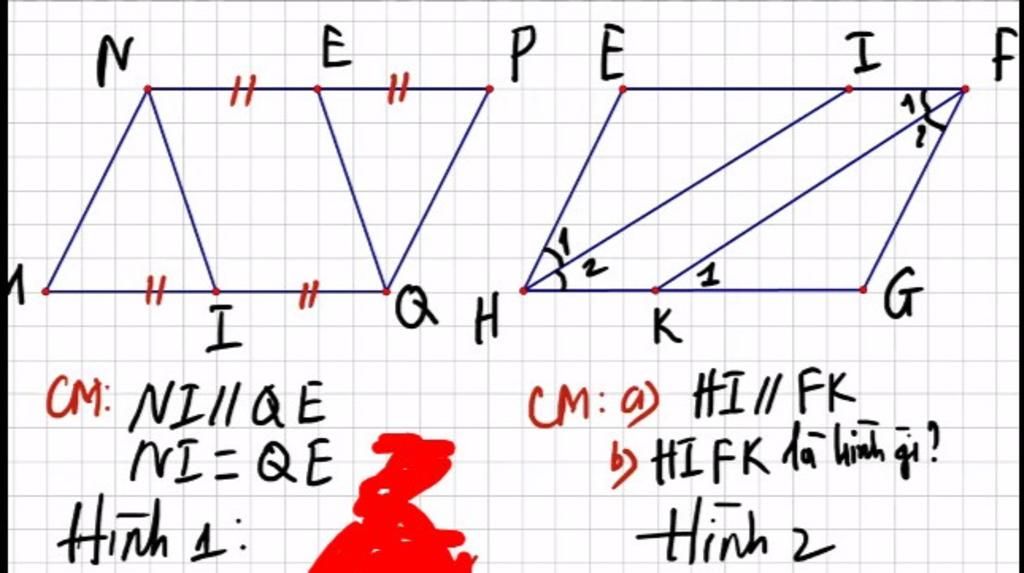 N E P E I F
1 2
1 2 1
M I Q H K G
CM: NI // QE
NI = QE
Hình 1:
CM: a) HI // FK
b) HIFK là hình gì?
Hình 2